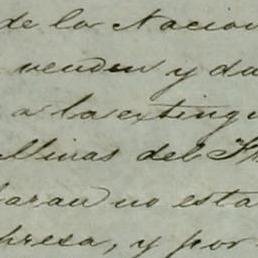 de la Nacion
venden y da
a la exting
Minas del
aran no esta
presa, y por